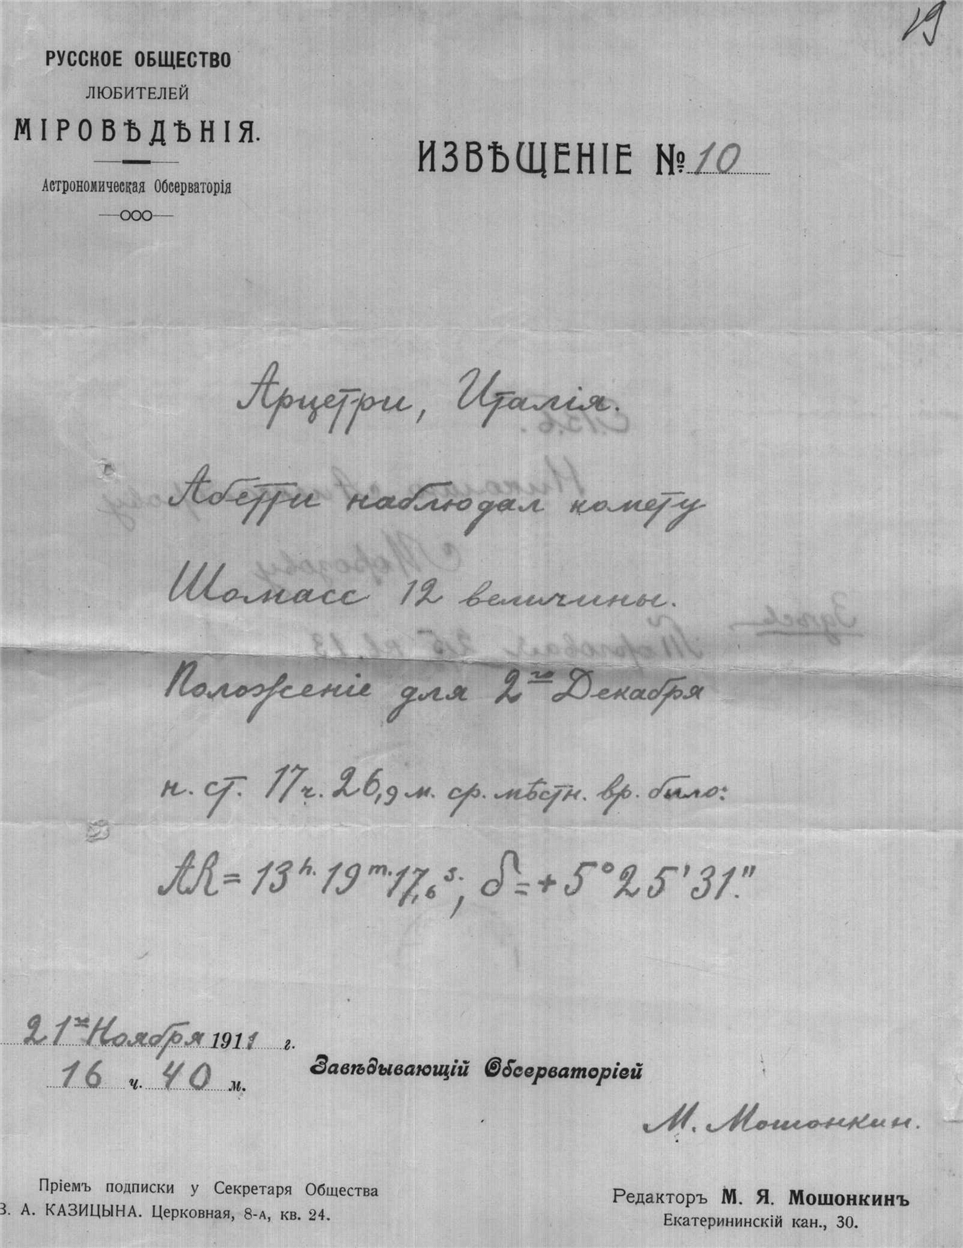 19
РУССКОЕ ОБЩЕСТВО
ЛЮБИТЕЛЕЙ
МІРОВѢДѢНІЯ.
Астрономическая Обсерваторія
ИЗВѢЩЕНІЕ № 10
Арцетри, Италія.
Абетти наблюдал комету
Шомасс 12 величины.
Положеніе для 2го Декабря
н. ст. 17 ч. 26,9 м. ср. мѣстн. вр. было:
AR = 13h. 19m. 17,6s.; δ = + 5° 25' 31."
21го Ноября 1911 г.
16 ч. 40 м.
Завѣдывающій Обсерваторіей
М. Мошонкин.
Пріемъ подписки у Секретаря Общества
В. А. КАЗИЦЫНА. Церковная, 8-А, кв. 24.
Редакторъ М. Я. Мошонкинъ
Екатерининскій кан., 30.